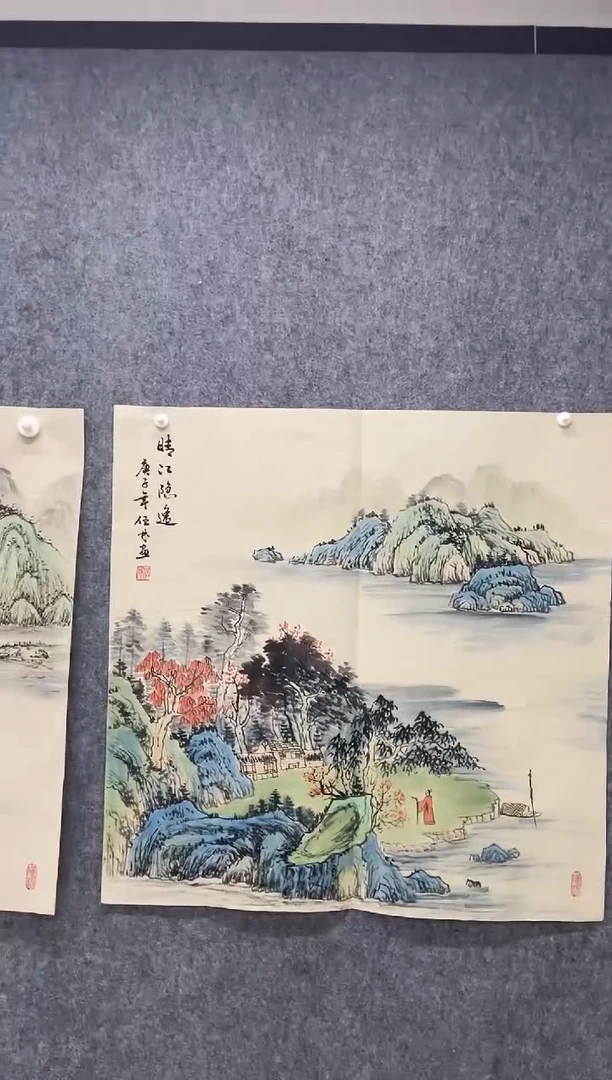 晴江隐逸
庚子年任林画